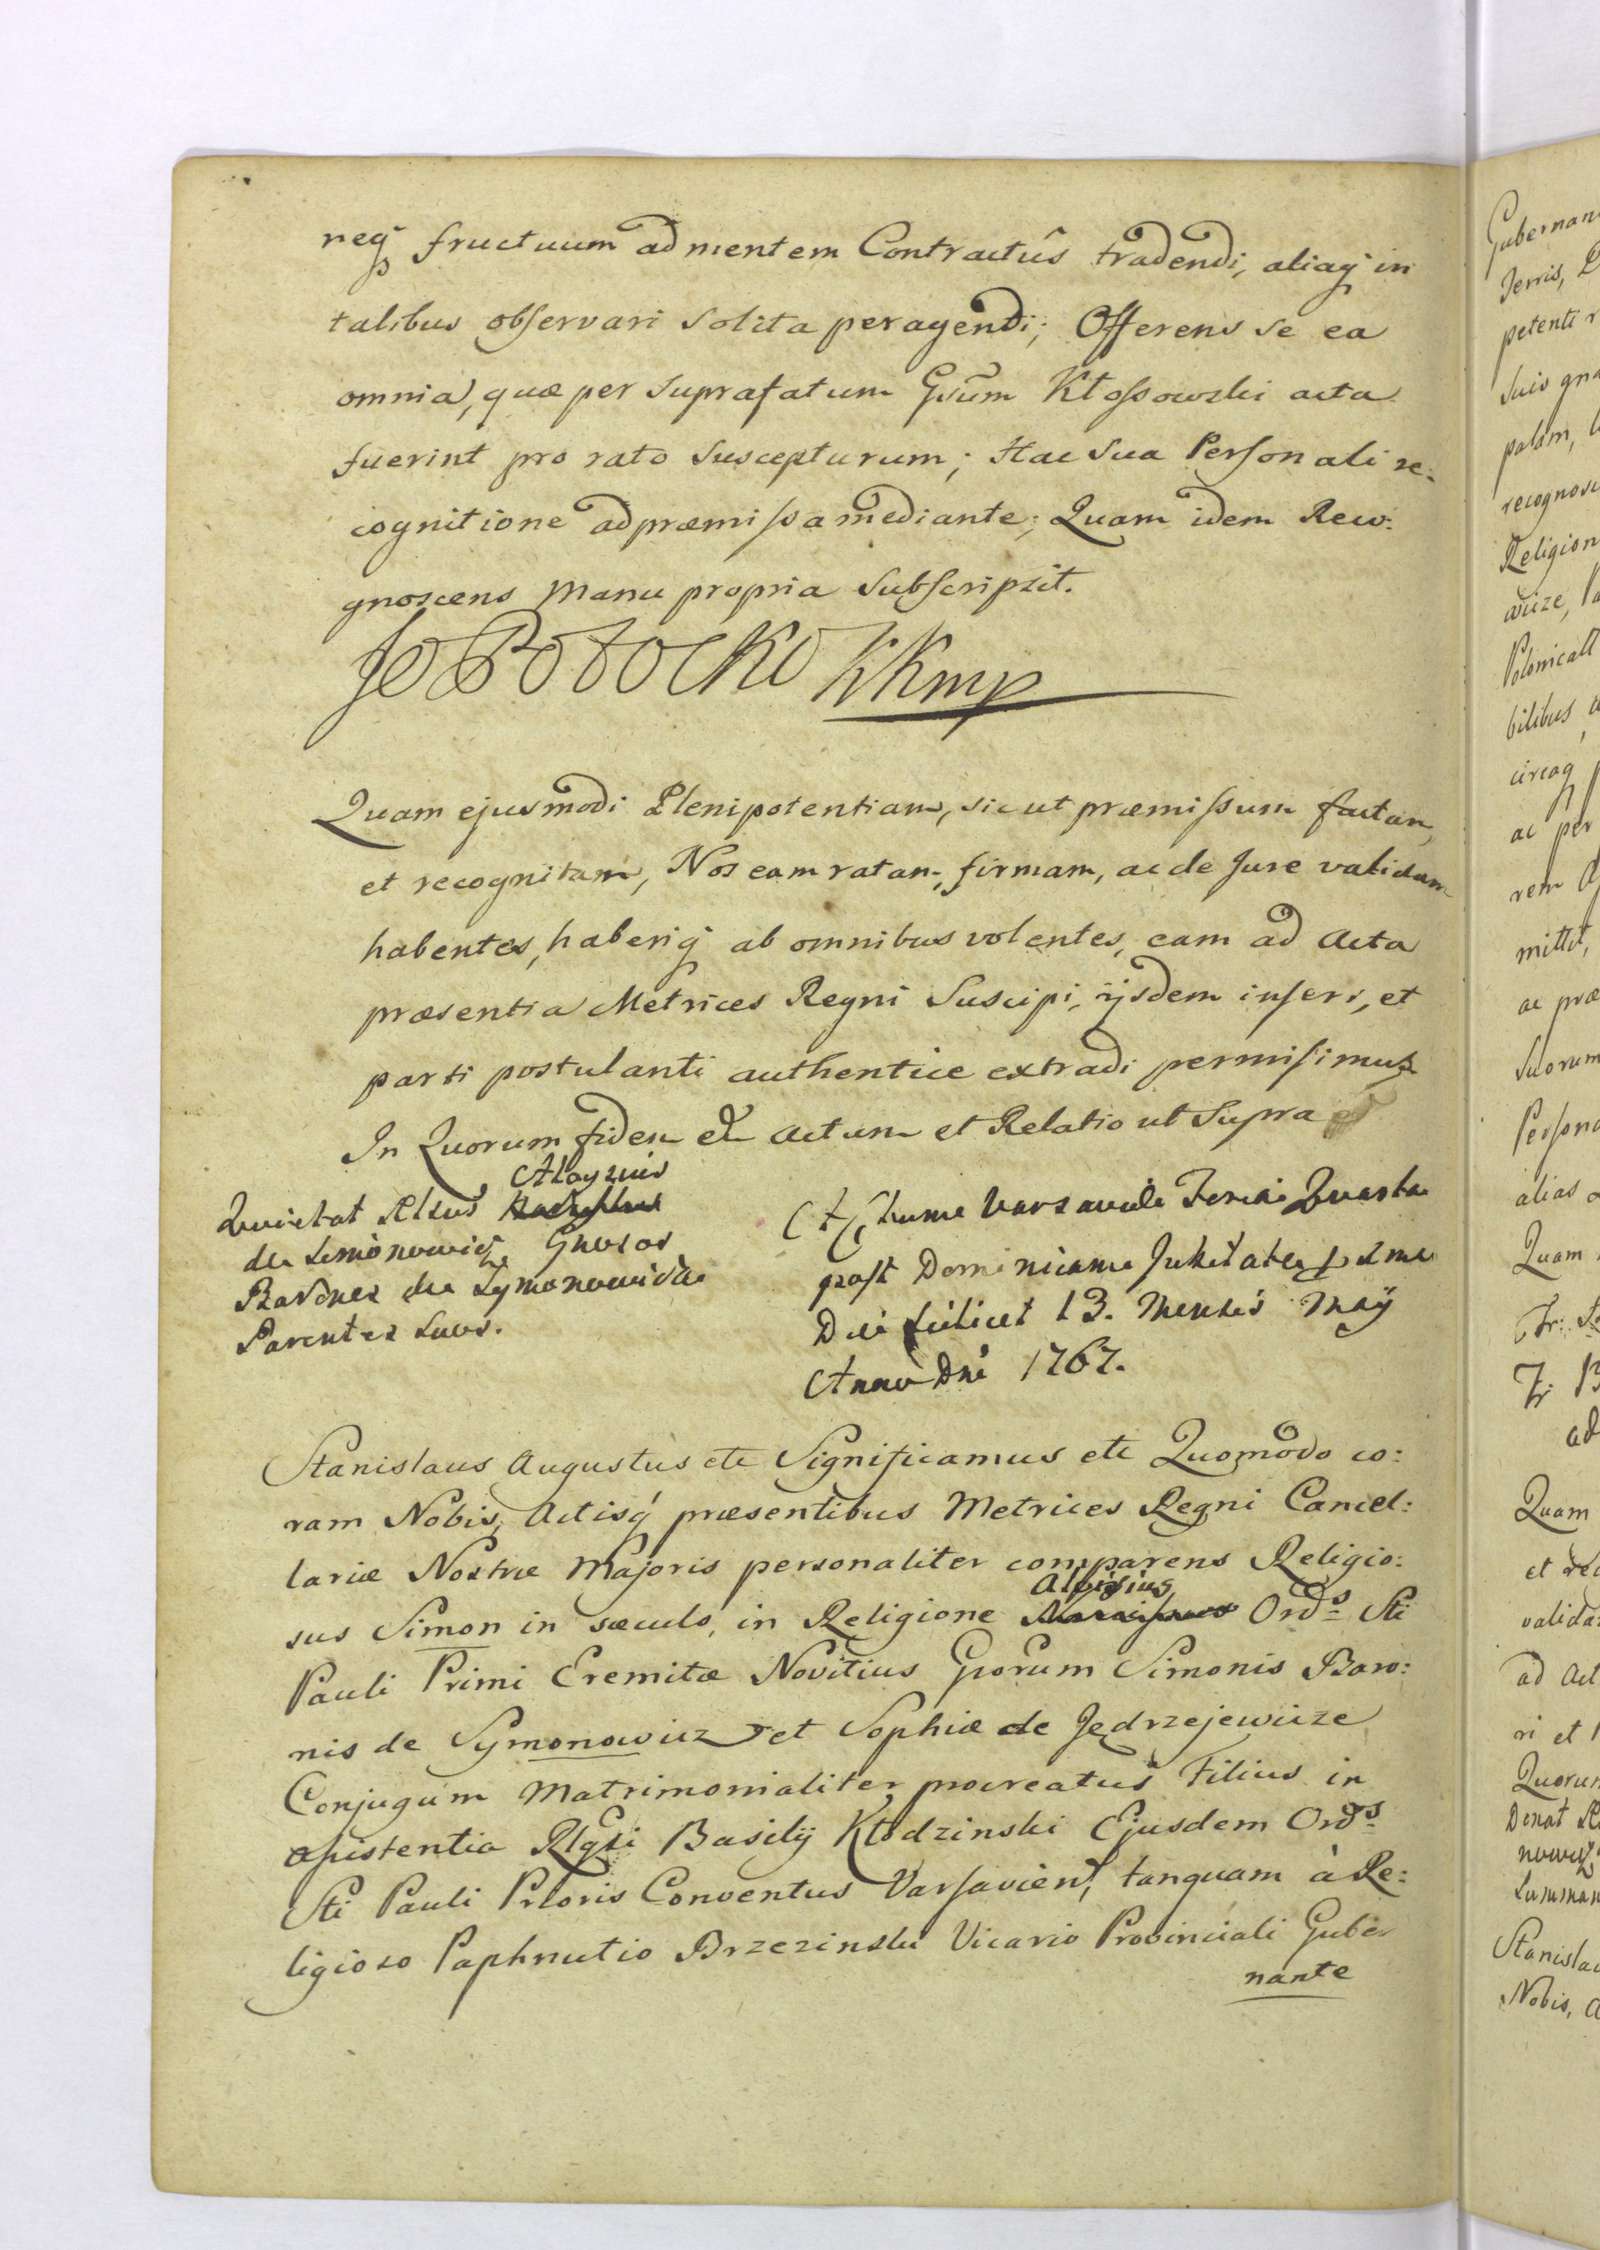 req fructuum ad mentem Contractûs tradendi, aliaq in
talibus observari solita peragendi; Offerens se ea
omnia, quæ per suprafatum Gsũm Kłossowski acta
fuerint pro rato suscepturum; Hac sua Personali re:
cognitione ad præmissa mediante; Quam idem Reco:
gnoscens manu propria subscripsit.
Potocki KKmp
Quam ejusmodi Plenipotentiam, sic ut præmissum factam,
et recognitam, Nos eam ratam, firmam, ac de Jure validam
habentes, haberiq ab omnibus volentes, eam ad Acta
præsentia Metrices Regni Suscipi, ijsdem inseri, et
parti postulanti authentice extradi permisimus
In Quorum fidem etc Actum et Relatio ut Supra
Aloyzius
Quietat Rlsus
de Simonowicz Gnosos
Barones de Symonowicze
Parentes Suos.
Actum Varsaviæ Feria Quarta
post Dominicam Jubilate pxma
Die scilicet 13. Mensis Maÿ
Anno Dni 1767.
Stanislaus Augustus etc Significamus etc Quomodo co:
ram Nobis, Actisq præsentibus Metrices Regni Cancel:
lariæ Nostræ Majoris personaliter comparens Religio:
Aloisius
sus Simon in sæculo, in Religione Ordˢ Sti
Pauli Primi Eremitæ Novitius Gsorum Simonis Baro:
nis de Symonowicz et Sophiæ de Jędrzejewicze
Conjugum Matrimonialiter procreatus Filius in
assistentia Rlgsi Basilÿ Kłodzinski Ejusdem Ordˢ
Sti Pauli Prioris Conventus Varsavien, tanquam à Re:
ligioso Paphnutio Brzezinski Vicario Provinciali Guber
nante
Gubernan
petenti
suis
palam,
Religion
bilibus
circaq
ac per
mittit,
ac præ
suorum
Persona
alias
Quam
Fr:
Fr. B
ad
Quam
et rec
valida
ad Act
ri et
Quorum
Donat
Summam
Stanislau
Nobis, A